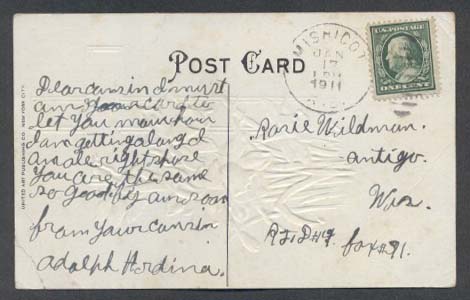 POST CARD
MISHICOT
JAN
17
1911
WIS.
U.S. POSTAGE
ONE CENT
UNITED ART PUBLISHING CO. NEW YORK CITY
Dear cousin I must
a card to
let you now how
I am getting along I
am ale right shure
You are the same
so good by
from Your cousin
Adolph Hordina.
Rosie Wildman.
antigo.
Wis.
R.F.D #4 box #91.